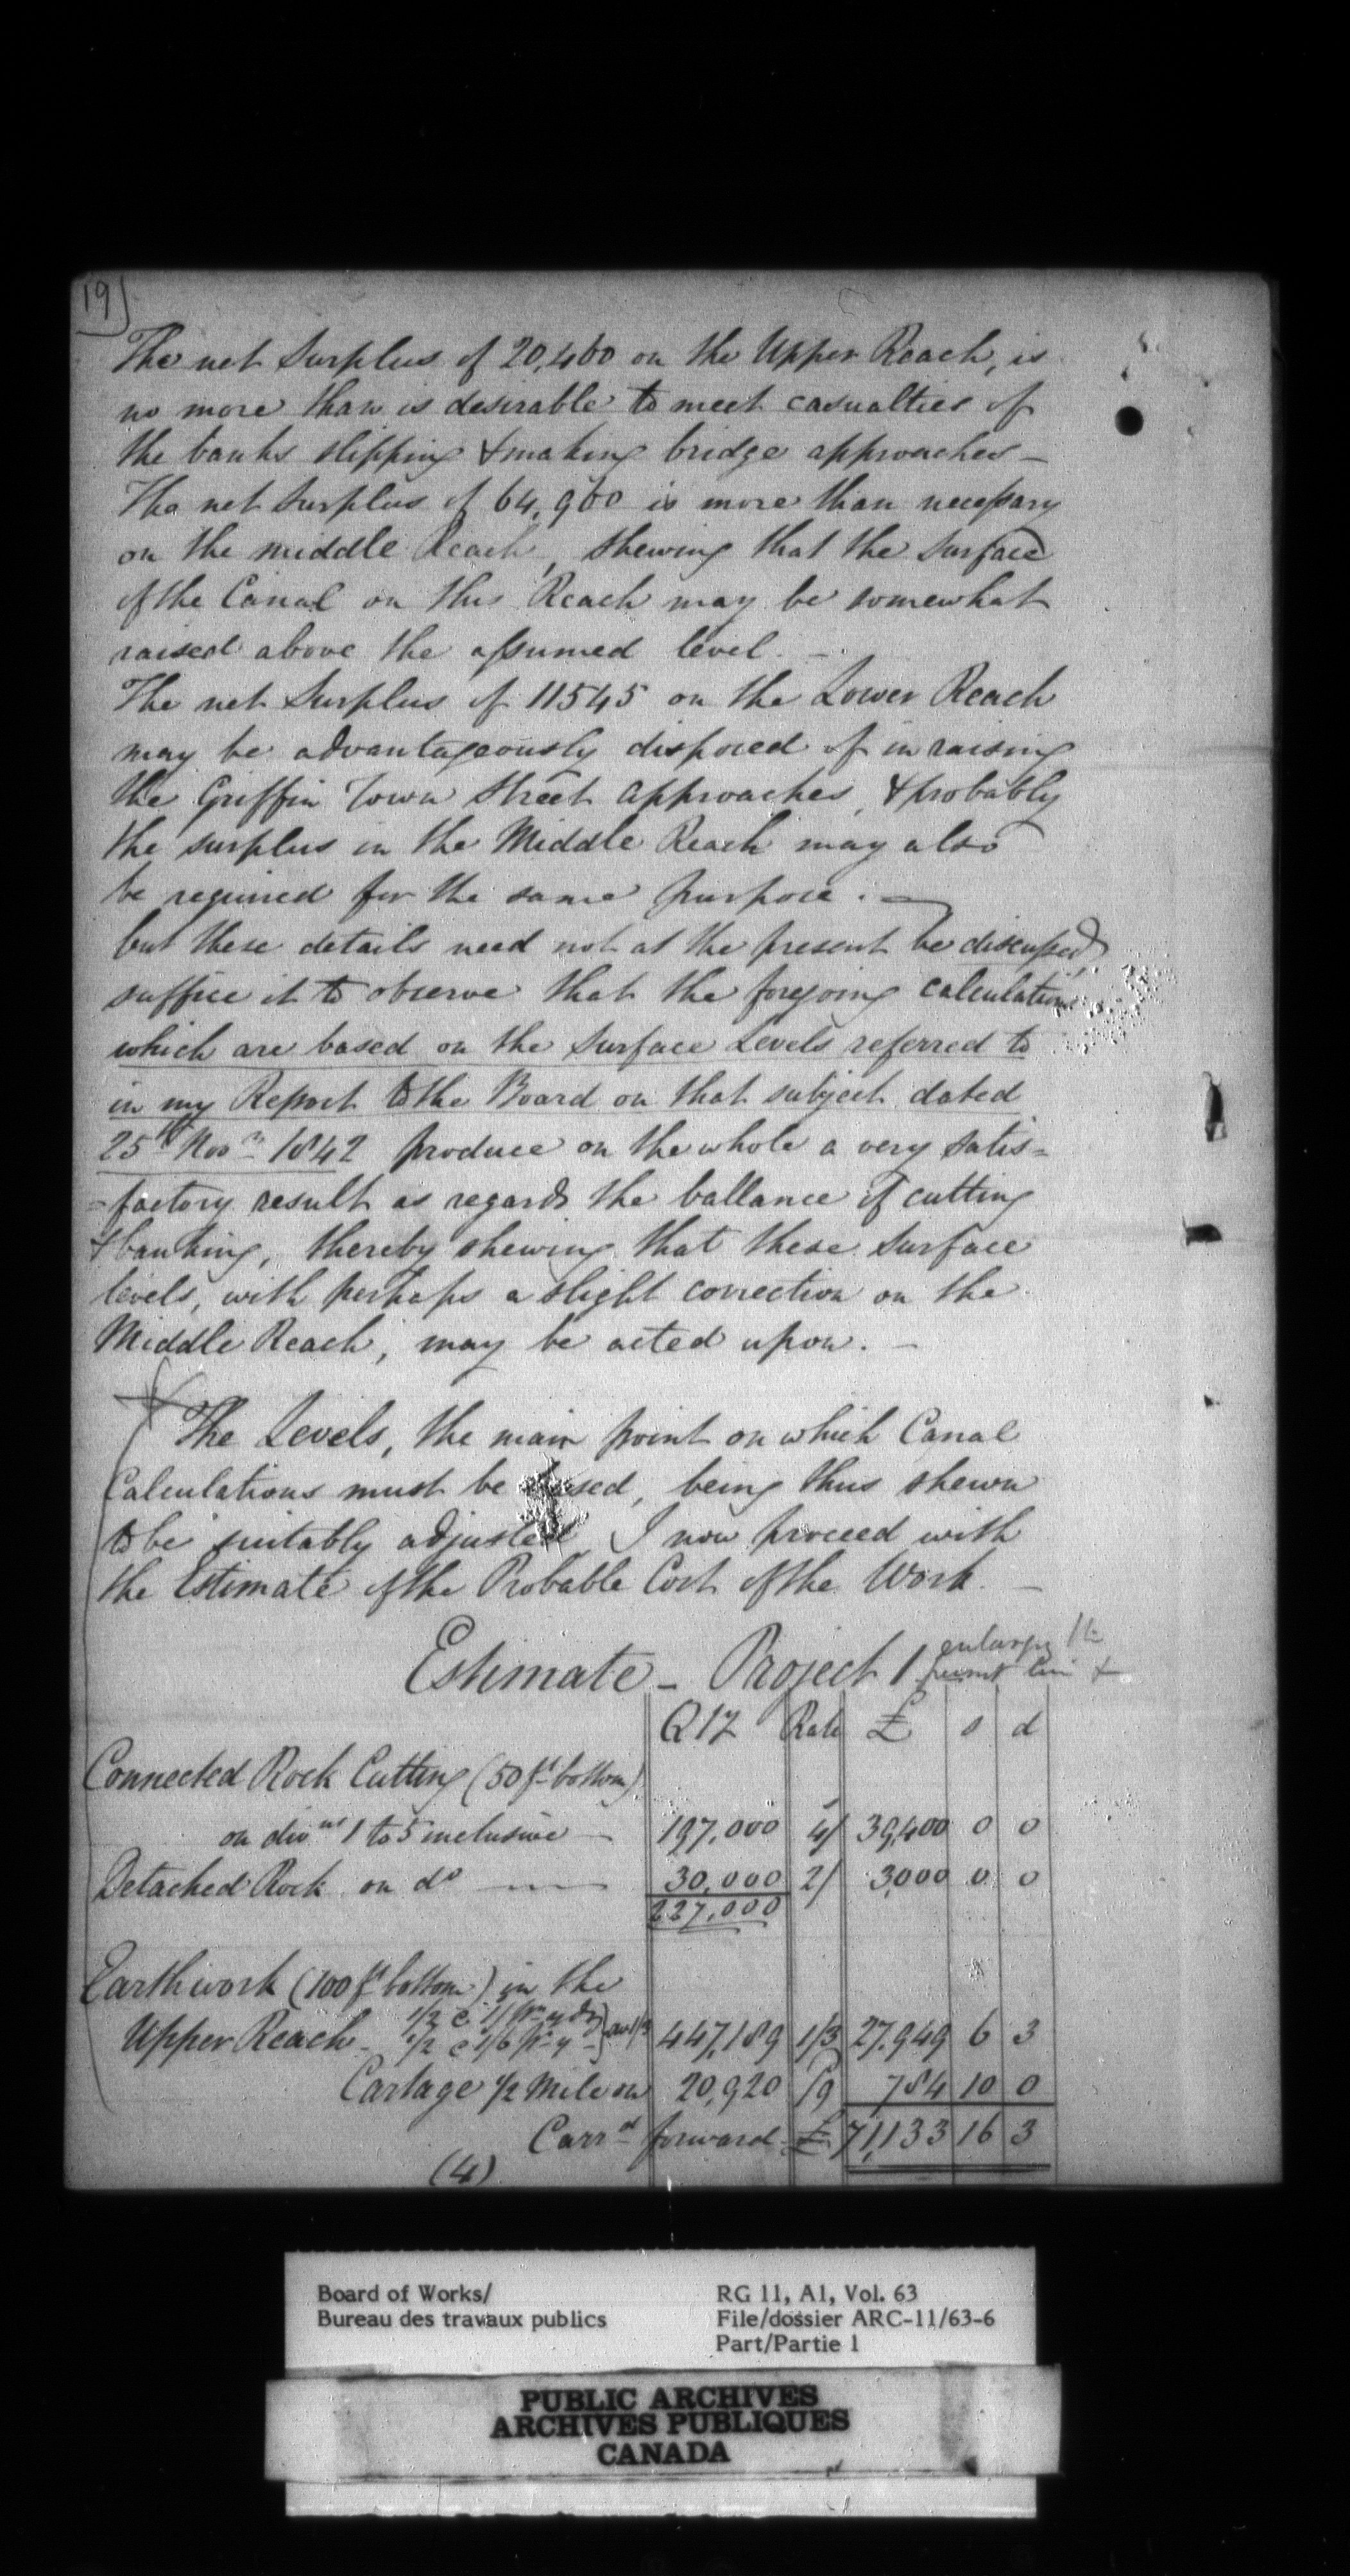 19)
The net Surplus of 20,460 on the Upper Reach, is
no more than is desirable to meet casualties of
the banks slipping & making bridge approaches —
The net Surplus of 64,960 is more than necessary
on the middle Reach, shewing that the surface
of the Canal on this Reach may be somewhat
raised above the assumed level. —
The net Surplus of 11545 on the Lower Reach
may be advantageously disposed of in raising
the Griffin Town Street approaches, & probably
the surplus in the Middle Reach may also
be required for the same purpose. —
but these details need not at the present be discussed,
suffice it to observe that the foregoing calculations
which are based on the Surface Levels referred to
in my Report to the Board on that subject dated
25th Novr 1842 produce on the whole a very satis=
=factory result as regards the ballance of cutting
& banking, thereby shewing that these Surface
levels, with perhaps a slight correction on the
Middle Reach, may be acted upon. —
The Levels, the main point on which Canal
Calculations must be based, being thus shewn
to be suitably adjusted, I now proceed with
the Estimate of the Probable Cost of the Work. —
Estimate – Project 1 enlarging the
present line
Qty Rate £ s d
Connected Rock Cutting (50 ft bottom)
on divns 1 to 5 inclusive — 197,000 4/ 39,400 0 0
Detached Rock on do — 30,000 2/ 3,000 0 0
227,000
Earthwork (100 ft bottom) in the
Upper Reach – 1/2 @ 1/ pr yd 1/2 @ 1/6 pr yd } av 1/3 447,189 1/3 27,949 6 3
Cartage 1/2 Mile on 20,920 /9 784 10 0
Carrd forward £ 71,133 16 3
(4)
Board of Works/
Bureau des travaux publics
RG 11, A1, Vol. 63
File/dossier ARC-11/63-6
Part/Partie 1
PUBLIC ARCHIVES
ARCHIVES PUBLIQUES
CANADA